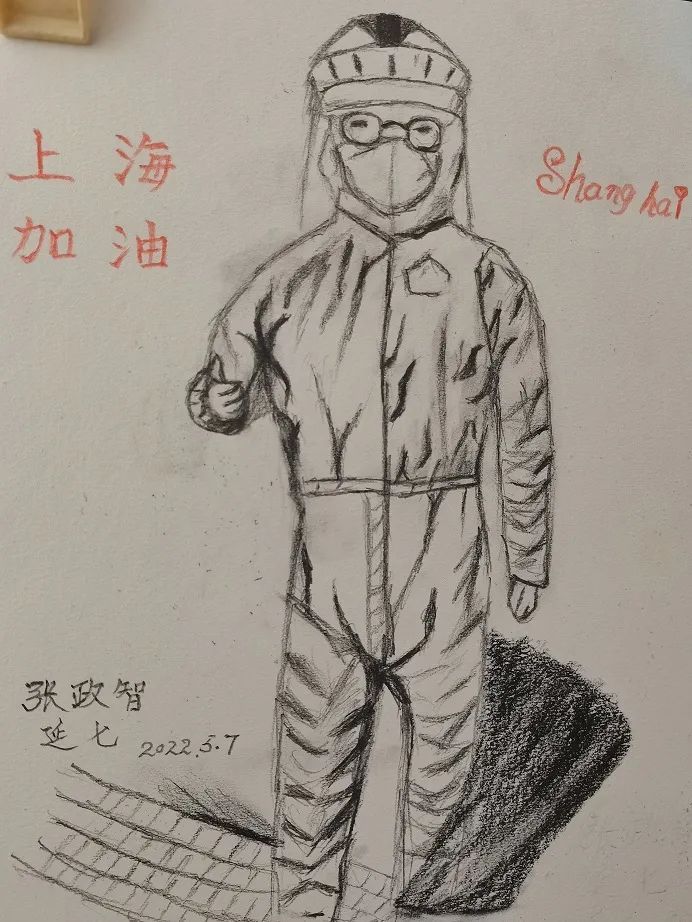 上海
加油
Shanghai
张政智
延七
2022.5.7